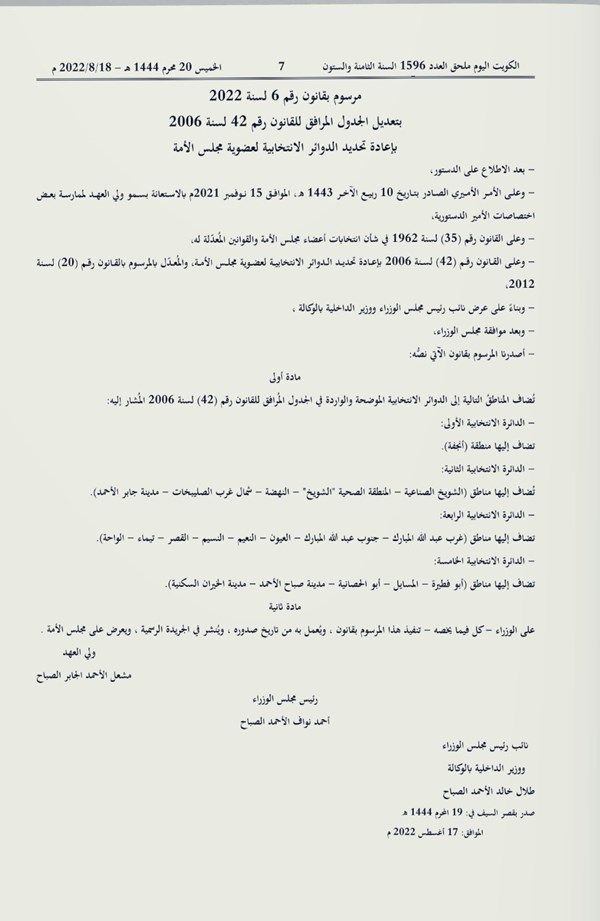 الكويت اليوم ملحق العدد 1596 السنة الثامنة والستون 7 الخميس 20 محرم 1444 هـ – 2022/8/18 م
مرسوم بقانون رقم 6 لسنة 2022
بتعديل الجدول المرافق للقانون رقم 42 لسنة 2006
بإعادة تحديد الدوائر الانتخابية لعضوية مجلس الأمة
– بعد الاطلاع على الدستور،
– وعلى الأمر الأميري الصادر بتاريخ 10 ربيع الآخر 1443 هـ، الموافق 15 نوفمبر 2021م بالاستعانة بسمو ولي العهد لممارسة بعض
اختصاصات الأمير الدستورية،
– وعلى القانون رقم (35) لسنة 1962 في شأن انتخابات أعضاء مجلس الأمة والقوانين المُعدّلة له،
– وعلى القانون رقم (42) لسنة 2006 بإعادة تحديد الدوائر الانتخابية لعضوية مجلس الأمة، والمُعدّل بالمرسوم بالقانون رقم (20) لسنة
2012،
– وبناءً على عرض نائب رئيس مجلس الوزراء ووزير الداخلية بالوكالة ،
– وبعد موافقة مجلس الوزراء،
– أصدرنا المرسوم بقانون الآتي نصُّه:
مادة أولى
تُضاف المناطقُ التالية إلى الدوائر الانتخابية الموضحة والواردة في الجدول المُرافق للقانون رقم (42) لسنة 2006 المُشار إليه:
– الدائرة الانتخابية الأولى:
تضاف إليها منطقة (أنجفة).
– الدائرة الانتخابية الثانية:
تُضاف إليها مناطق (الشويخ الصناعية – المنطقة الصحية "الشويخ" – النهضة – شمال غرب الصليبخات – مدينة جابر الأحمد).
– الدائرة الانتخابية الرابعة:
تضاف إليها مناطق (غرب عبد الله المبارك – جنوب عبد الله المبارك – العيون – النعيم – النسيم – القصر – تيماء – الواحة).
– الدائرة الانتخابية الخامسة:
تضاف إليها مناطق (أبو فطيرة – المسايل – أبو الحصانية – مدينة صباح الأحمد – مدينة الخيران السكنية).
مادة ثانية
على الوزراء – كل فيما يخصه – تنفيذ هذا المرسوم بقانون ، ويُعمل به من تاريخ صدوره ، ويُنشر في الجريدة الرسمية ، ويعرض على مجلس الأمة .
ولي العهد
مشعل الأحمد الجابر الصباح
رئيس مجلس الوزراء
أحمد نواف الأحمد الصباح
نائب رئيس مجلس الوزراء
ووزير الداخلية بالوكالة
طلال خالد الأحمد الصباح
صدر بقصر السيف في: 19 المحرم 1444 هـ
الموافق: 17 أغسطس 2022 م